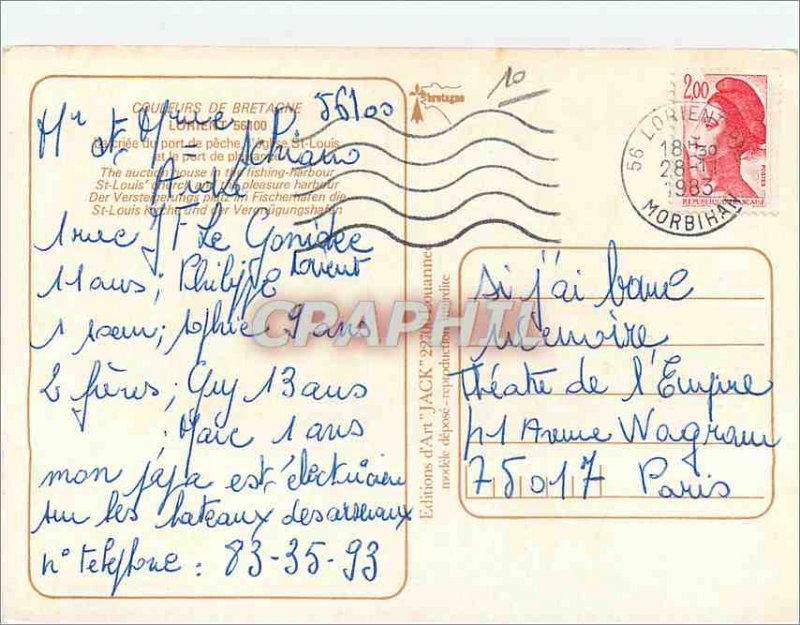 COULEURS DE BRETAGNE
LORIENT 56100
La criée du port de pêche, l'église St-Louis
et le port de plaisance
The auction house in the fishing-harbour
St-Louis' church and the pleasure harbour
Der Versteigerungs platz im Fischerhafen die
St-Louis Kirche und der Vergnügungshafen
Mr et Mme 56100
1 rue Le Gonidec
Lorient
11 ans; Philippe
1 sœur; Sophie 9 ans
2 frères; Guy 13 ans
Marc 1 ans
mon papa est électricien
sur les bateaux des arsenaux
n° telephone : 83-35-93
bretagne
10
Editions d'Art "JACK" 22700 Louannec
modèle déposé - reproduction interdite
2,00
POSTES
REPUBLIQUE FRANÇAISE
56 LORIENT
18H30
28-1
1983
MORBIHAN
si j'ai bonne
mémoire,
théatre de l'Empire
41 Avenue Wagram
75017 Paris
CPAPHIL